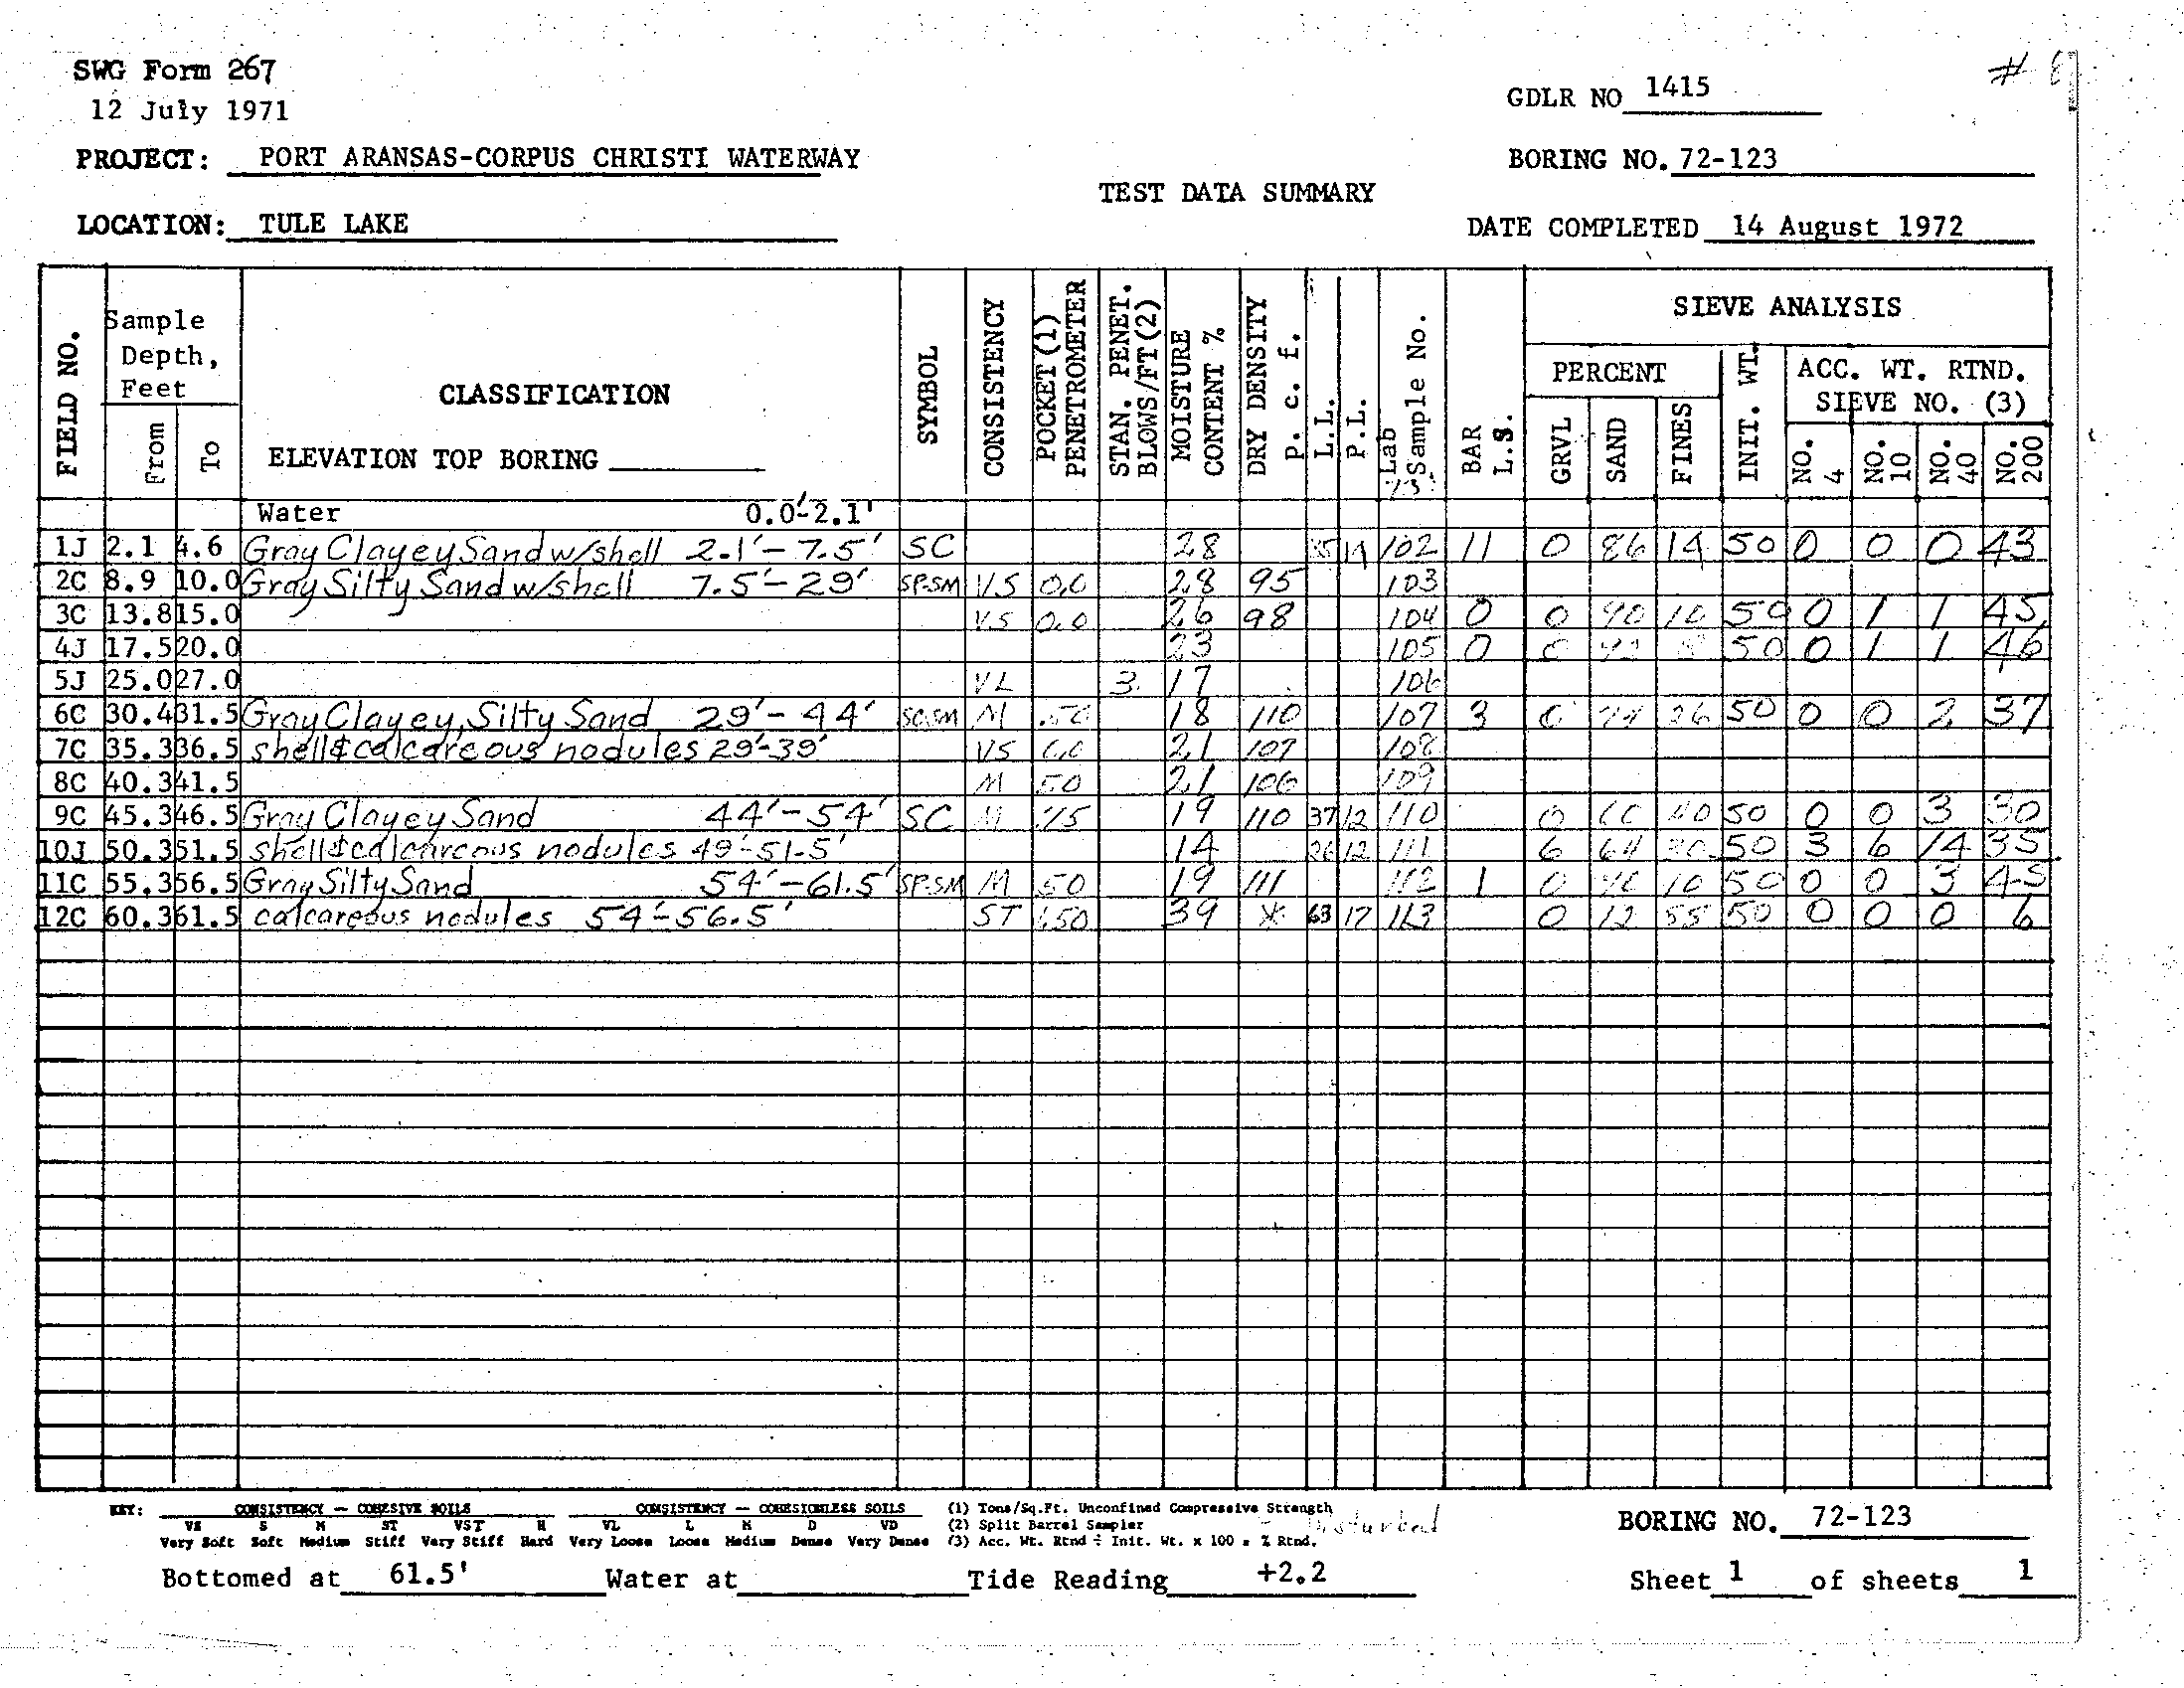 SWG Form 267
12 July 1971
GDLR NO 1415
#
PROJECT: PORT ARANSAS-CORPUS CHRISTI WATERWAY
BORING NO. 72-123
TEST DATA SUMMARY
LOCATION: TULE LAKE
DATE COMPLETED 14 August 1972
FIELD NO.
Sample Depth, Feet
From
To
CLASSIFICATION
ELEVATION TOP BORING
SYMBOL
CONSISTENCY
POCKET (1) PENETROMETER
STAN. PENET. BLOWS/FT(2)
MOISTURE CONTENT %
DRY DENSITY P. c. f.
L.L.
P.L.
Lab Sample No.
BAR L.S.
SIEVE ANALYSIS
PERCENT
GRVL
SAND
FINES
INIT. WT.
ACC. WT. RTND. SIEVE NO. (3)
NO. 4
NO. 10
NO. 40
NO. 200
Water 0.0'-2.1'
1J 2.1 4.6 Gray Clayey Sand w/shell 2.1'-7.5' SC 28 14 102 11 0 86 14 50 0 0 0 43
2C 8.9 10.0 Gray Silty Sand w/shell 7.5'-29' SP-SM VS 0.0 28 95 103
3C 13.8 15.0 VS 0.0 26 98 104 0 0 90 10 50 0 1 1 45
4J 17.5 20.0 23 105 0 50 0 1 1 46
5J 25.0 27.0 VL 3 17 106
6C 30.4 31.5 Gray Clayey, Silty Sand 29'-44' SC-SM M .50 18 110 107 3 0 74 26 50 0 0 2 37
7C 35.3 36.5 shell & calcareous nodules 29'-39' VS 0.0 21 107 108
8C 40.3 41.5 M .50 21 106 109
9C 45.3 46.5 Gray Clayey Sand 44'-54' SC M .75 19 110 37 12 110 0 60 40 50 0 0 3 30
10J 50.3 51.5 shell & calcareous nodules 49'-51.5' 14 26 12 111 6 64 30 50 3 6 14 35
11C 55.3 56.5 Gray Silty Sand 54'-61.5' SP-SM M .50 19 111 112 1 0 90 10 50 0 0 3 45
12C 60.3 61.5 calcareous nodules 54'-56.5' ST 1.50 39 * 63 17 113 0 12 50 0 0 0 6
KEY: CONSISTENCY - COHESIVE SOILS CONSISTENCY - COHESIONLESS SOILS (1) Tons/Sq.Ft. Unconfined Compressive Strength
VS S M ST VST H VL L M D VD (2) Split Barrel Sampler
Very Soft Soft Medium Stiff Very Stiff Hard Very Loose Loose Medium Dense Very Dense (3) Acc. Wt. Rtnd ÷ Init. Wt. x 100 = % Rtnd.
Disturbed
BORING NO. 72-123
Bottomed at 61.5' Water at Tide Reading +2.2
Sheet 1 of sheets 1